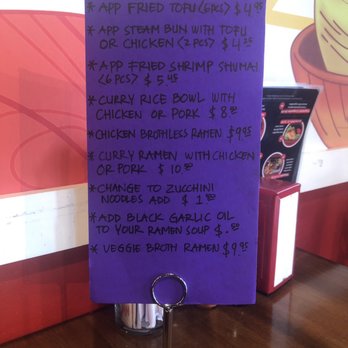 * APP FRIED TOFU (6PCS) $4.95
* APP STEAM BUN WITH TOFU
OR CHICKEN (2 PCS) $4.25
* APP FRIED SHRIMP SHUMAI
(6 PCS) $5.45
* CURRY RICE BOWL WITH
CHICKEN OR PORK $8.
* CHICKEN BROTHLESS RAMEN $9.95
* CURRY RAMEN WITH CHICKEN
OR PORK $10.
* CHANGE TO ZUCCHINI
NOODLES ADD $1.
* ADD BLACK GARLIC OIL
TO YOUR RAMEN SOUP $.
* VEGGIE BROTH RAMEN $9.